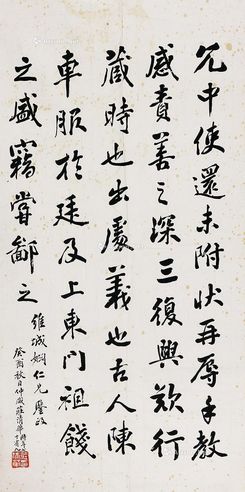 允中使還未附状再辱手教
感責善之深三復興歎行
藏時也出處義也古人陳
車服於廷及上東門祖餞
之盛竊嘗鄙之
維城姻仁兄鑒政
癸酉秋日仲咸莊清華